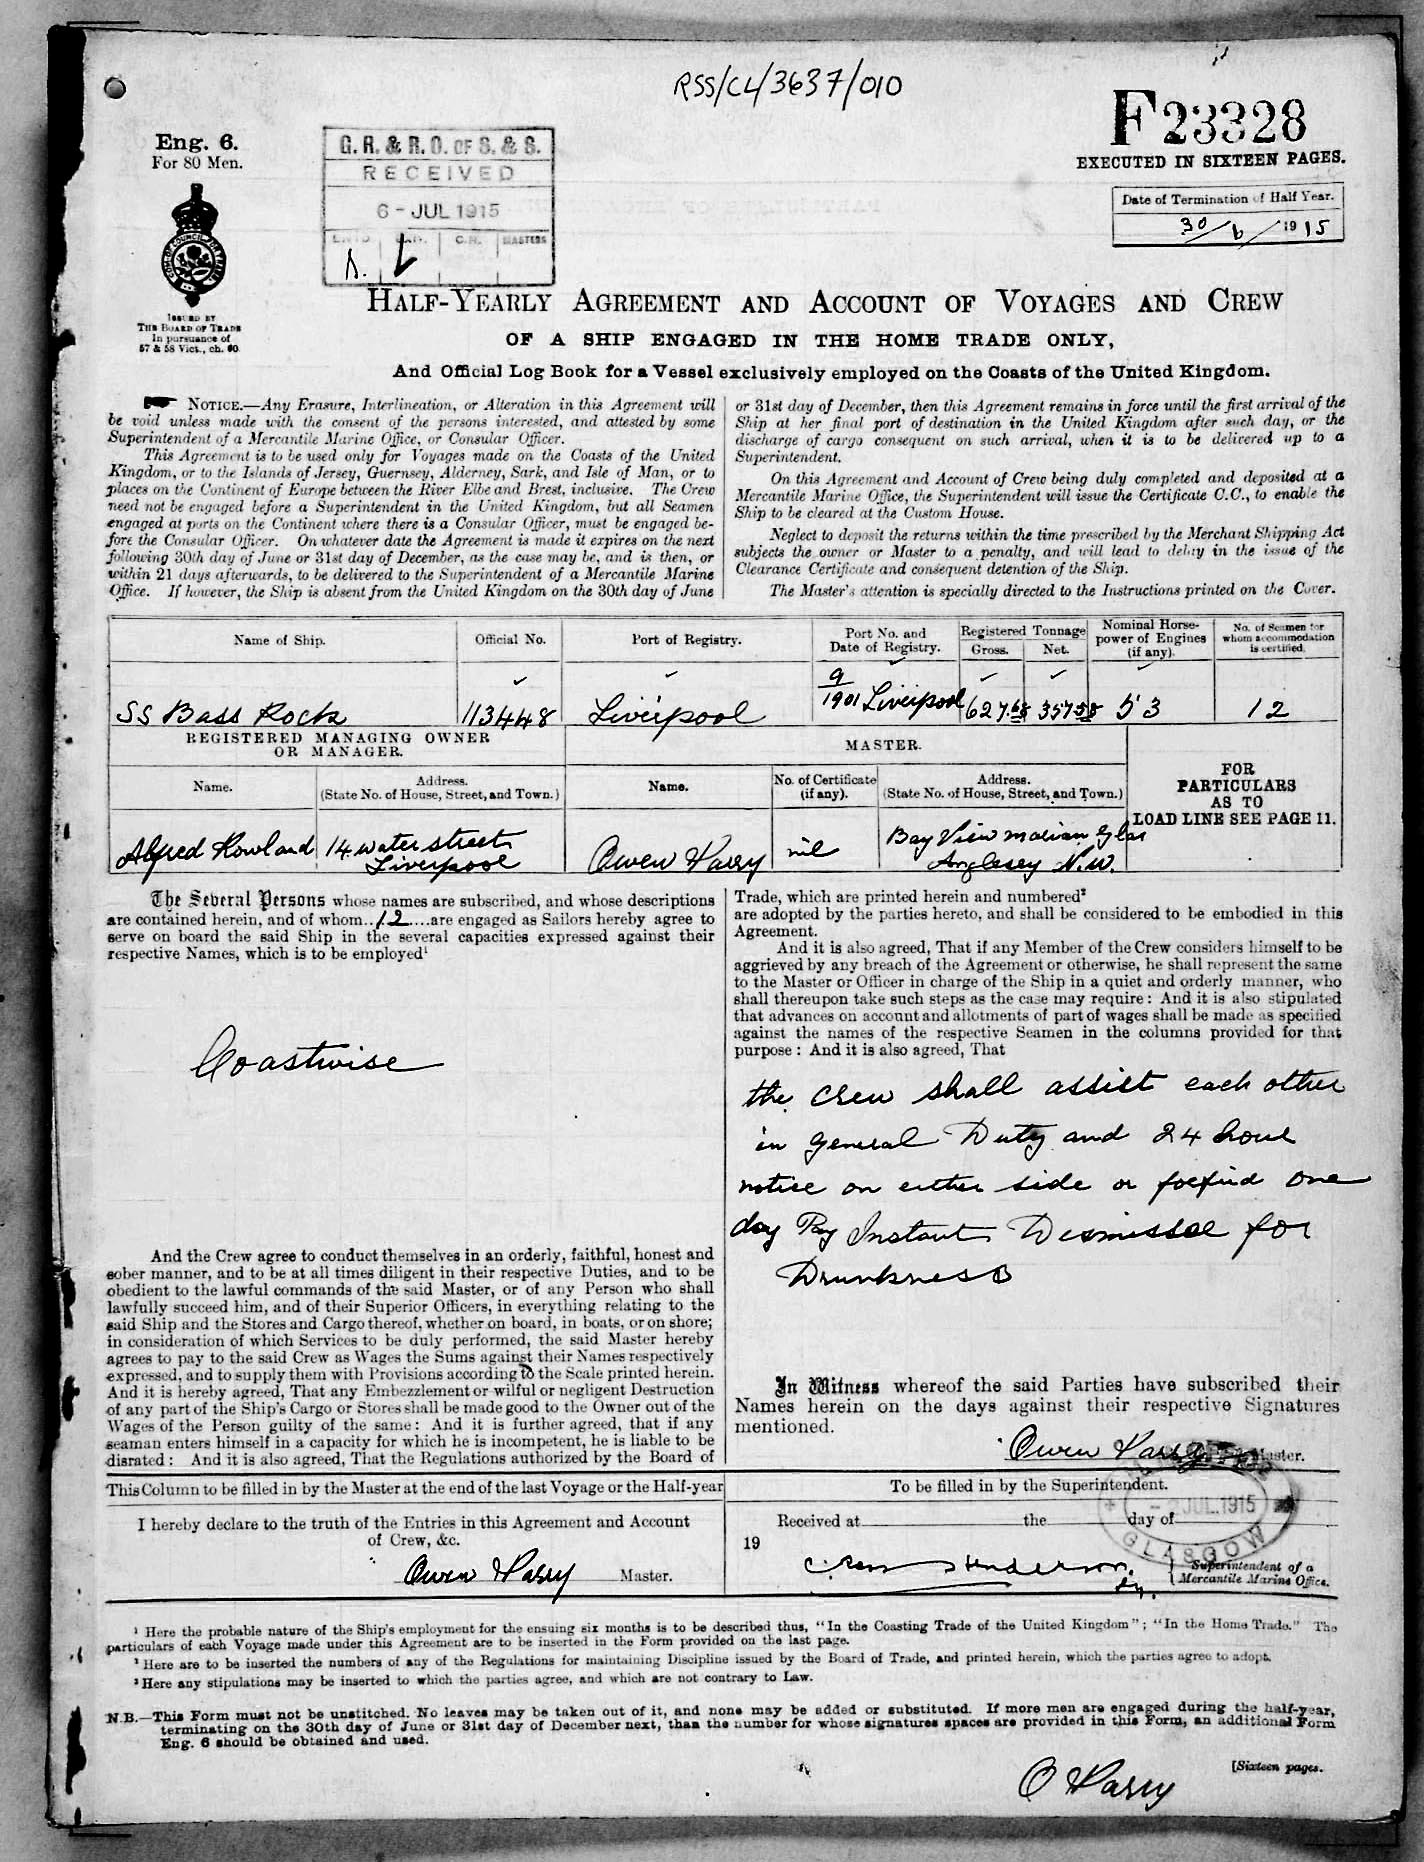 RSS/CL/3637/010
F23328
EXECUTED IN SIXTEEN PAGES.
Eng. 6.
For 80 Men.
G. R. & R. O. OF S. & S.
RECEIVED
6 - JUL 1915
C.R. MASTERS
Date of Termination of Half Year.
30/6/1915
ISSUED BY
THE BOARD OF TRADE
In pursuance of
57 & 58 Vict., ch. 60.
HALF-YEARLY AGREEMENT AND ACCOUNT OF VOYAGES AND CREW
OF A SHIP ENGAGED IN THE HOME TRADE ONLY,
And Official Log Book for a Vessel exclusively employed on the Coasts of the United Kingdom.
NOTICE.—Any Erasure, Interlineation, or Alteration in this Agreement will
be void unless made with the consent of the persons interested, and attested by some
Superintendent of a Mercantile Marine Office, or Consular Officer.
This Agreement is to be used only for Voyages made on the Coasts of the United
Kingdom, or to the Islands of Jersey, Guernsey, Alderney, Sark, and Isle of Man, or to
places on the Continent of Europe between the River Elbe and Brest, inclusive. The Crew
need not be engaged before a Superintendent in the United Kingdom, but all Seamen
engaged at ports on the Continent where there is a Consular Officer, must be engaged be-
fore the Consular Officer. On whatever date the Agreement is made it expires on the next
following 30th day of June or 31st day of December, as the case may be, and is then, or
within 21 days afterwards, to be delivered to the Superintendent of a Mercantile Marine
Office. If however, the Ship is absent from the United Kingdom on the 30th day of June
or 31st day of December, then this Agreement remains in force until the first arrival of the
Ship at her final port of destination in the United Kingdom after such day, or the
discharge of cargo consequent on such arrival, when it is to be delivered up to a
Superintendent.
On this Agreement and Account of Crew being duly completed and deposited at a
Mercantile Marine Office, the Superintendent will issue the Certificate C.C., to enable the
Ship to be cleared at the Custom House.
Neglect to deposit the returns within the time prescribed by the Merchant Shipping Act
subjects the owner or Master to a penalty, and will lead to delay in the issue of the
Clearance Certificate and consequent detention of the Ship.
The Master's attention is specially directed to the Instructions printed on the Cover.
Name of Ship. Official No. Port of Registry. Port No. and Date of Registry. Registered Tonnage Gross. Net. Nominal Horse-power of Engines (if any). No. of Seamen for whom accommodation is certified.
SS Bass Rock 113448 Liverpool 9/1901 Liverpool 627.68 357.58 53 12
REGISTERED MANAGING OWNER
OR MANAGER.
MASTER.
Name. Address. (State No. of House, Street, and Town.) Name. No. of Certificate (if any). Address. (State No. of House, Street, and Town.)
FOR
PARTICULARS
AS TO
LOAD LINE SEE PAGE 11.
Alfred Rowland 14 water street Liverpool Owen Parry nil Bay View marian glas Anglesey N.W.
The Several Persons whose names are subscribed, and whose descriptions
are contained herein, and of whom..12....are engaged as Sailors hereby agree to
serve on board the said Ship in the several capacities expressed against their
respective Names, which is to be employed¹
Coastwise
And the Crew agree to conduct themselves in an orderly, faithful, honest and
sober manner, and to be at all times diligent in their respective Duties, and to be
obedient to the lawful commands of the said Master, or of any Person who shall
lawfully succeed him, and of their Superior Officers, in everything relating to the
said Ship and the Stores and Cargo thereof, whether on board, in boats, or on shore;
in consideration of which Services to be duly performed, the said Master hereby
agrees to pay to the said Crew as Wages the Sums against their Names respectively
expressed, and to supply them with Provisions according to the Scale printed herein.
And it is hereby agreed, That any Embezzlement or wilful or negligent Destruction
of any part of the Ship's Cargo or Stores shall be made good to the Owner out of the
Wages of the Person guilty of the same: And it is further agreed, that if any
seaman enters himself in a capacity for which he is incompetent, he is liable to be
disrated: And it is also agreed, That the Regulations authorized by the Board of
Trade, which are printed herein and numbered²
are adopted by the parties hereto, and shall be considered to be embodied in this
Agreement.
And it is also agreed, That if any Member of the Crew considers himself to be
aggrieved by any breach of the Agreement or otherwise, he shall represent the same
to the Master or Officer in charge of the Ship in a quiet and orderly manner, who
shall thereupon take such steps as the case may require: And it is also stipulated
that advances on account and allotments of part of wages shall be made as specified
against the names of the respective Seamen in the columns provided for that
purpose: And it is also agreed, That
the crew shall assist each other
in general Duty and 24 hour
notice on either side or forfiud one
day Pay Instant Dismissal for
Drunkness
In Witness whereof the said Parties have subscribed their
Names herein on the days against their respective Signatures
mentioned.
Owen Parry Master.
This Column to be filled in by the Master at the end of the last Voyage or the Half-year
I hereby declare to the truth of the Entries in this Agreement and Account
of Crew, &c.
Owen Parry Master.
To be filled in by the Superintendent.
Received at the day of
19
- 2 JUL. 1915
GLASGOW
Henderson
Superintendent of a
Mercantile Marine Office.
¹ Here the probable nature of the Ship's employment for the ensuing six months is to be described thus, "In the Coasting Trade of the United Kingdom"; "In the Home Trade." The
particulars of each Voyage made under this Agreement are to be inserted in the Form provided on the last page.
² Here are to be inserted the numbers of any of the Regulations for maintaining Discipline issued by the Board of Trade, and printed herein, which the parties agree to adopt.
³ Here any stipulations may be inserted to which the parties agree, and which are not contrary to Law.
N.B.—This Form must not be unstitched. No leaves may be taken out of it, and none may be added or substituted. If more men are engaged during the half-year,
terminating on the 30th day of June or 31st day of December next, than the number for whose signatures spaces are provided in this Form, an additional Form
Eng. 6 should be obtained and used.
[Sixteen pages.
O Parry